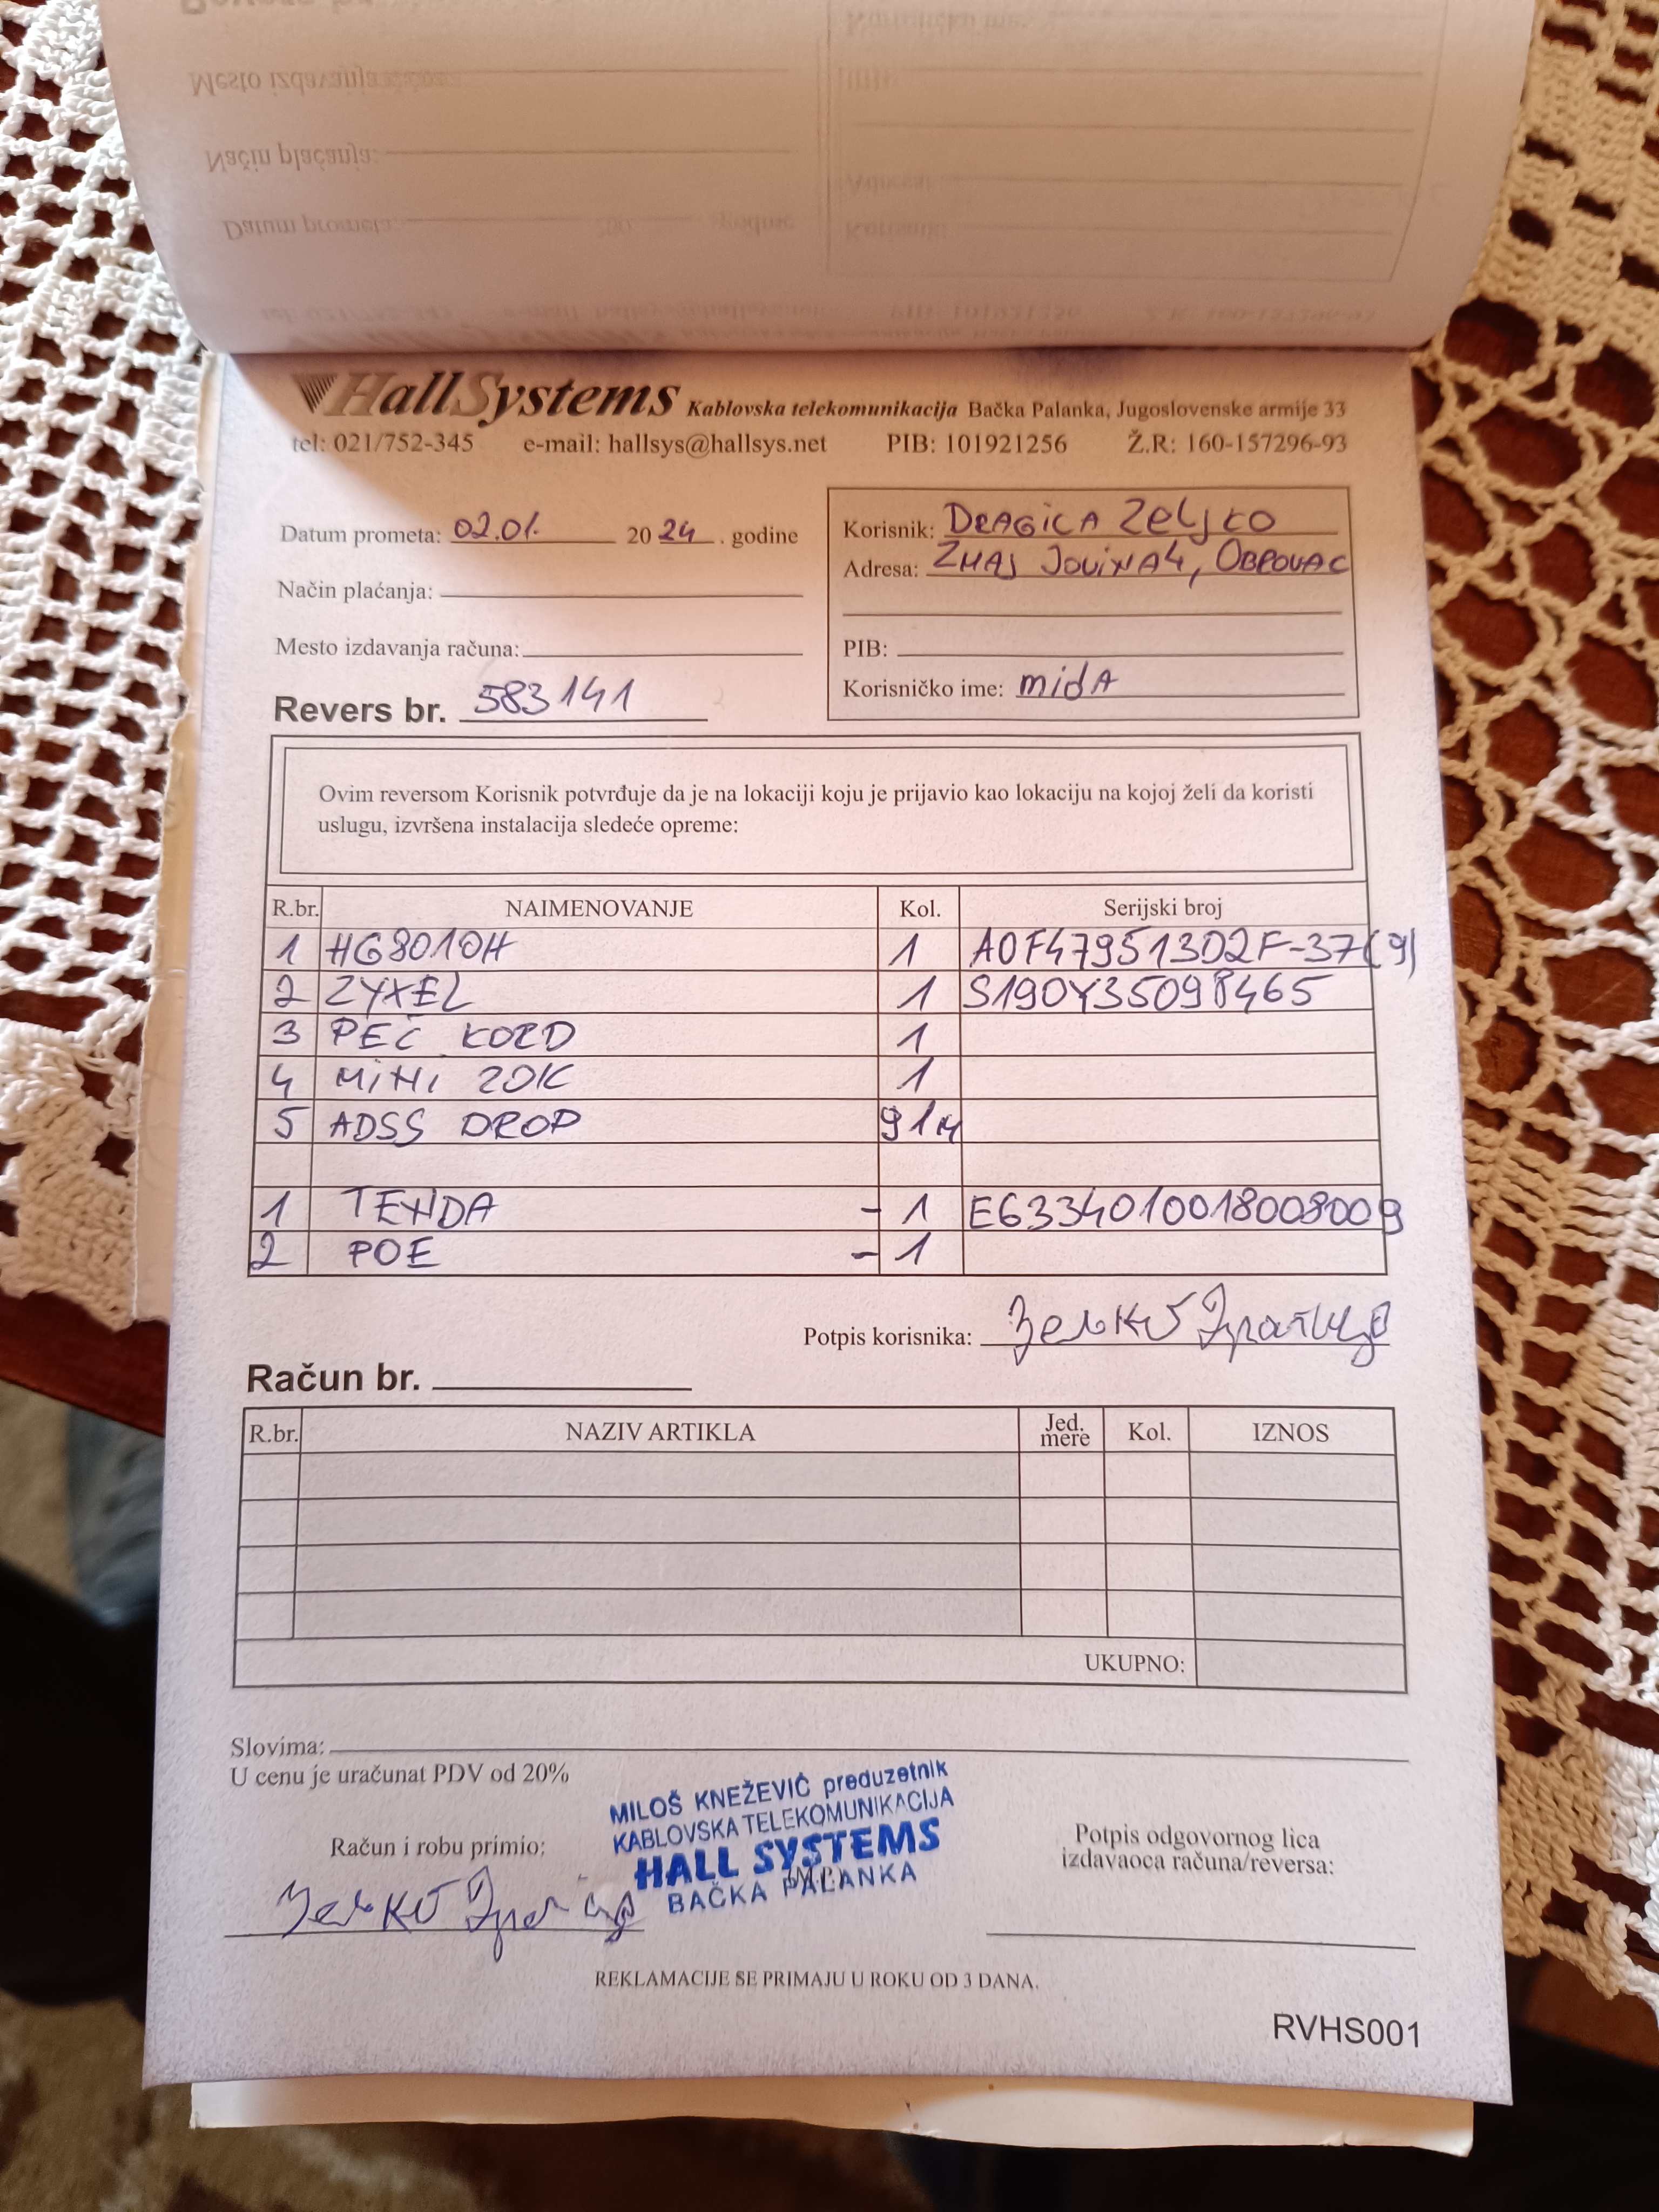 HallSystems Kablovska telekomunikacija Bačka Palanka, Jugoslovenske armije 33
tel: 021/752-345 e-mail: hallsys@hallsys.net PIB: 101921256 Ž.R: 160-157296-93
Datum prometa: 02.01. 2024. godine
Način plaćanja:
Mesto izdavanja računa:
Revers br. 583141
Korisnik: DRAGICA ZELJKO
Adresa: ZMAJ JOVINA 4, OBROVAC
PIB:
Korisničko ime: midA
Ovim reversom Korisnik potvrđuje da je na lokaciji koju je prijavio kao lokaciju na kojoj želi da koristi
uslugu, izvršena instalacija sledeće opreme:
R.br. NAIMENOVANJE Kol. Serijski broj
1 HG8010H 1 A0F479513D2F-37(9)
2 ZYXEL 1 S190Y35098465
3 PEČ KORD 1
4 MINI ZOK 1
5 ADSS DROP 91M
1 TENDA - 1 E6334010018008009
2 POE - 1
Potpis korisnika:
Račun br.
R.br. NAZIV ARTIKLA Jed. mere Kol. IZNOS
UKUPNO:
Slovima:
U cenu je uračunat PDV od 20%
MILOŠ KNEŽEVIĆ preduzetnik
KABLOVSKA TELEKOMUNIKACIJA
HALL SYSTEMS
(M.P.)
BAČKA PALANKA
Račun i robu primio:
Potpis odgovornog lica
izdavaoca računa/reversa:
REKLAMACIJE SE PRIMAJU U ROKU OD 3 DANA.
RVHS001